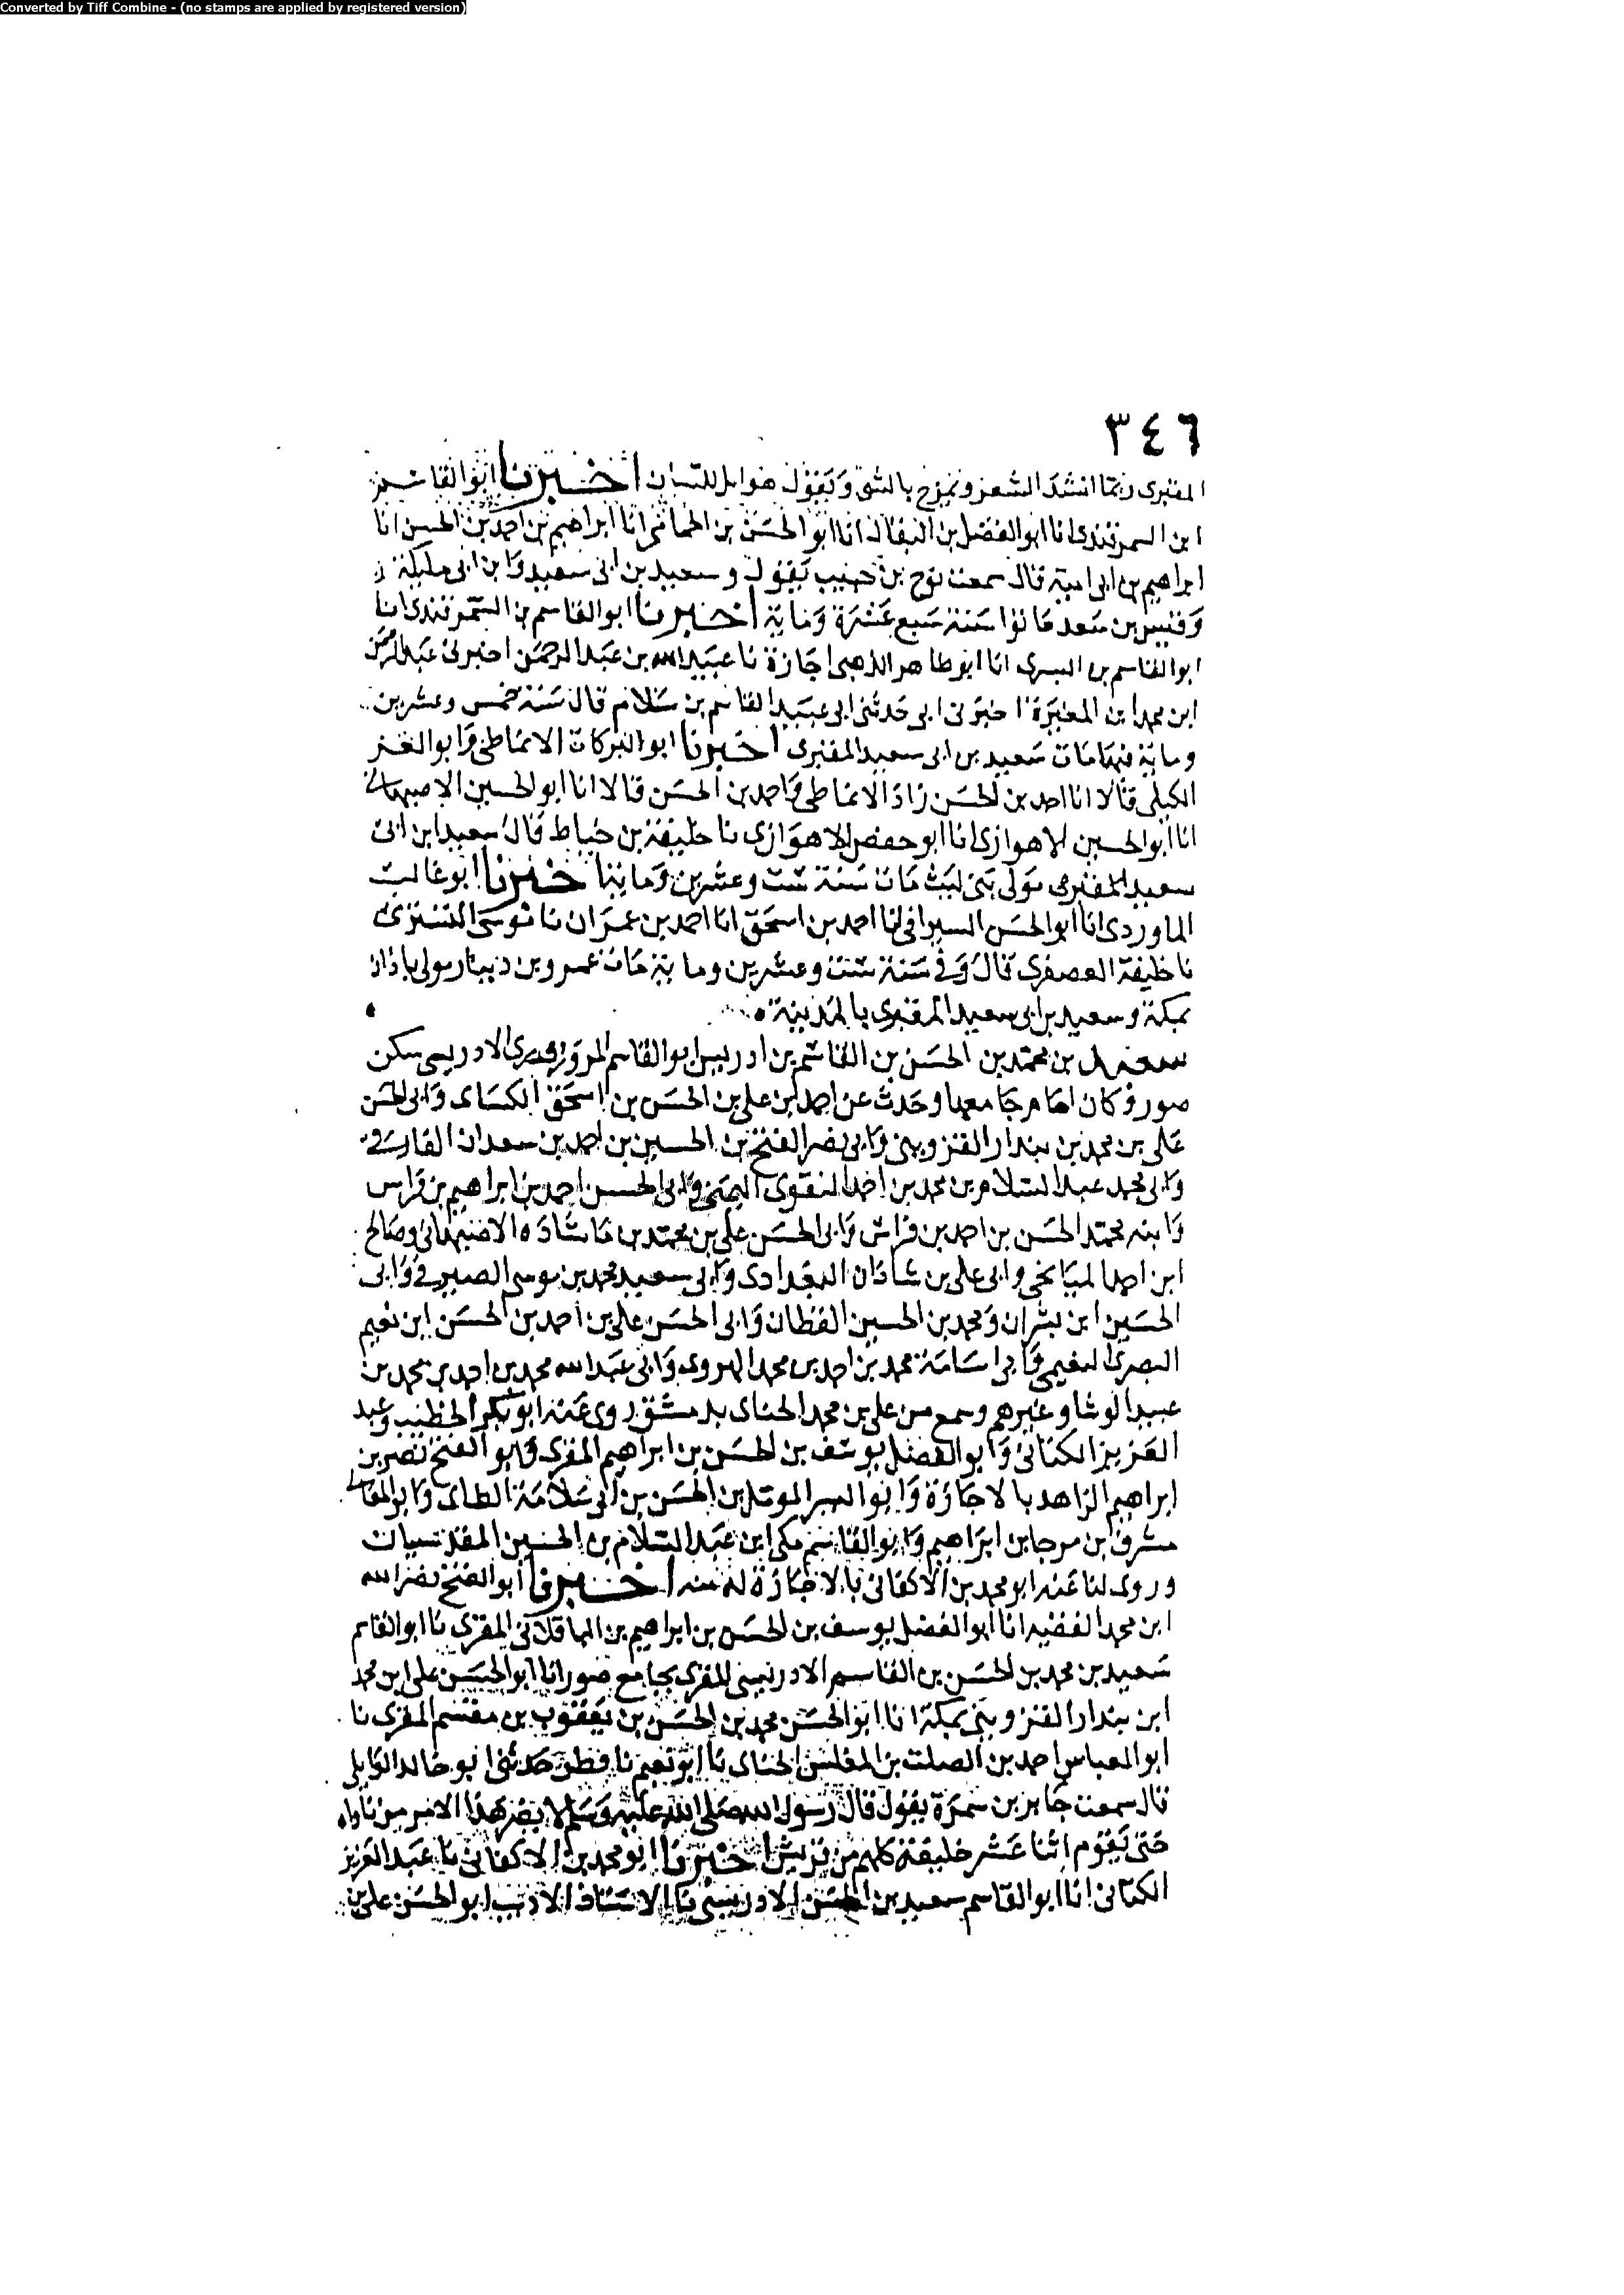 Converted by Tiff Combine - (no stamps are applied by registered version)
٣٤٦
المقبرى ربما انشد الشعر ويمزح بالشى ويقول اخبرنا ابو القاسم
ابن السمرقندى انا ابو الفضل بن البقال انا ابو الحسن بن الحمامى انا ابراهيم بن احمد بن الحسن انا
ابراهيم بن ابى امية قال سمعت نوح بن حبيب يقول وسعيد بن ابى سعيد وابن ابى مليكة
وقيس بن سعد ماتوا سنة سبع عشرة وماية اخبرنا ابو القاسم بن السمرقندى انا
ابو القاسم بن البسرى انا ابو طاهر الذهبى اجازة نا عبيد الله بن عبد الرحمن اخبرنى عبد الرحمن
ابن محمد ابن المغيرة اخبرنى ابى حدثنى ابى عبيد القاسم بن سلام قال سنة خمس وعشرين
وماية فيها مات سعيد بن ابى سعيد المقبرى اخبرنا ابو البركات الانماطى وابو العز
الكيلى قالا انا احمد بن الحسن زاد الانماطى واحمد بن الحسن قالا انا ابو الحسين الاصبهانى
انا ابو الحسين الاهوازى انا ابو حفص الاهوازى نا خليفة بن خياط قال سعيد ابن ابى
سعيد المقبرى مولى بنى ليث مات سنة ست وعشرين وماية اخبرنا ابو غالب
الماوردى انا ابو الحسن السيرافى انا احمد بن اسحق انا احمد بن عمران نا موسى التسترى
نا خليفة العصفرى قال وفى سنة ست وعشرين وماية مات عمرو بن دينار مولى باذان
بمكة وسعيد بن ابى سعيد المقبرى بالمدينة
سعيد بن محمد بن الحسن بن القاسم بن ادريس ابو القاسم المروزى الادريسى سكن
صور وكان امام جامعها وحدث عن احمد بن على بن الحسن بن اسحق الكساى وابى الحسن
على بن محمد بن بندار القزوينى وابى نصر الفتح بن الحسين بن احمد بن سعدان الفارسى
وابى محمد عبد السلام بن محمد بن احمد النقوى اليمنى وابى الحسن احمد بن ابراهيم بن فراس
وابنه محمد الحسن بن احمد بن فراس وابى الحسن على بن محمد بن ماشاذه الاصبهانى وصالح
ابن احمد الميانجى وابى على بن شاذان البغدادى وابى سعيد محمد بن موسى الصيرفى وابى
الحسين ابن بشران ومحمد بن الحسين القطان وابى الحسن على بن احمد بن الحسن ابن نعيم
البصرى النعيمى وابى اسامة محمد بن احمد بن محمد الهروى وابى عبد الله محمد بن احمد بن محمد بن
عبيد الوشا وغيرهم وسمع من على بن محمد الحناى بدمشق روى عنه ابو بكر الخطيب وعبد
العزيز الكنانى وابو الفضل يوسف بن الحسن بن ابراهيم المقرى وابو الفتح نصر بن
ابراهيم الزاهد بالاجازة وابو المومل بن الحسن بن ابى سلامة الطاى وابو المعالى
مشرف بن مرجا بن ابراهيم وابو القاسم مكى ابن عبد السلام بن الحسين المقدسيان
وروى لنا عنه ابو محمد بن الاكفانى بالاجازة له منه اخبرنا ابو الفتح نصر الله
ابن محمد الفقيه انا ابو الفضل يوسف بن الحسن بن ابراهيم بن الباقلانى المقرى نا ابو القاسم
سعيد بن محمد بن الحسن بن القاسم الادريسى المقرى بجامع صور انا ابو الحسن على ابن محمد
ابن بندار القزوينى بمكة انا ابو الحسن محمد بن الحسن بن يعقوب بن مقسم المقرى نا
ابو العباس احمد بن الصلت بن المغلس الحناى نا ابو نعيم نا فطر حدثنى ابو خالد الوابلى
قال سمعت جابر بن سمرة يقول قال رسول الله صلى الله عليه وسلم لا يضر هذا الامر من ناواه
حتى يقوم اثنا عشر خليفة كلهم من قريش اخبرنا ابو محمد بن الاكفانى نا عبد العزيز
الكتانى انا ابو القاسم سعيد بن الحسن الادريسى نا الاستاذ الاديب ابو الحسن على بن